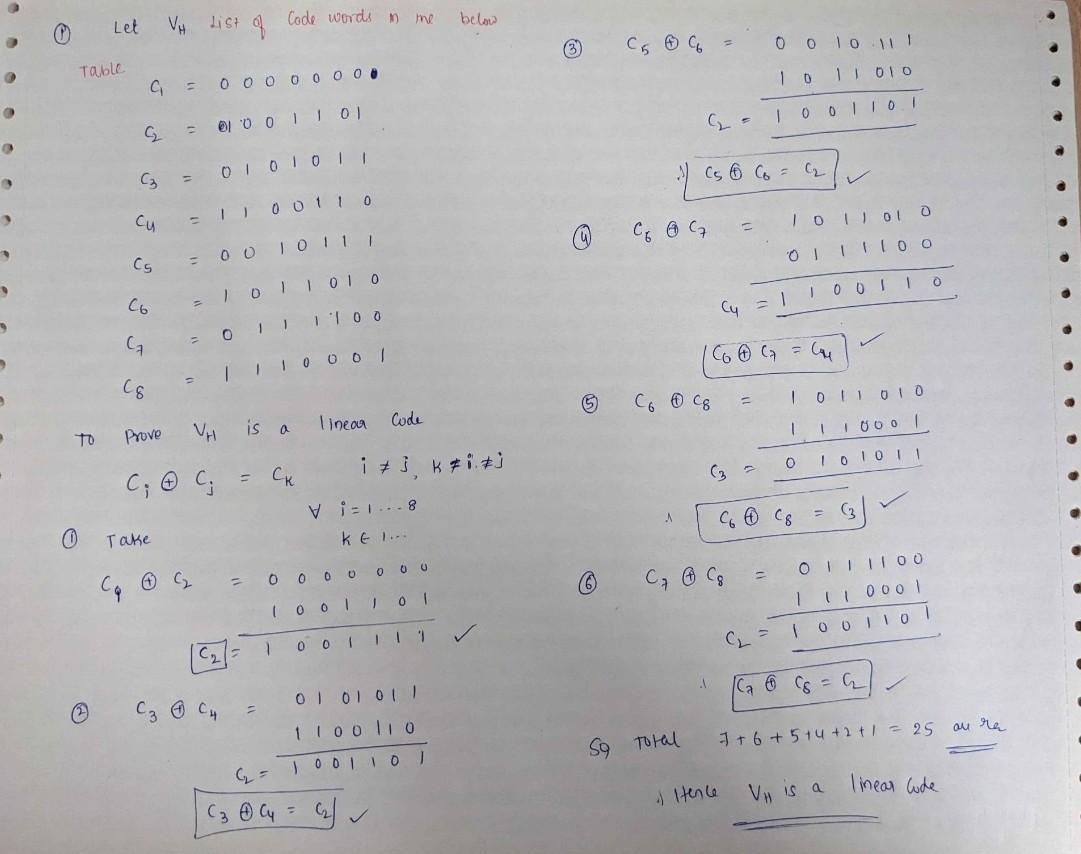 ① Let V_H List of Code words in me below
Table
C₁ = 0 0 0 0 0 0 0
C₂ = 1 0 0 1 1 0 1
C₃ = 0 1 0 1 0 1 1
C₄ = 1 1 0 0 1 1 0
C₅ = 0 0 1 0 1 1 1
C₆ = 1 0 1 1 0 1 0
C₇ = 0 1 1 1 1 0 0
C₈ = 1 1 1 0 0 0 1
To Prove V_H is a linear Code
C_i ⊕ C_j = C_K i ≠ j, K ≠ i ≠ j
∀ i = 1 ... 8
K ∈ 1 ...
① Take
C₁ ⊕ C₂ = 0 0 0 0 0 0 0
1 0 0 1 1 0 1
C₂ = 1 0 0 1 1 1 1 ✓
② C₃ ⊕ C₄ = 0 1 0 1 0 1 1
1 1 0 0 1 1 0
C₂ = 1 0 0 1 1 0 1
C₃ ⊕ C₄ = C₂ ✓
③ C₅ ⊕ C₆ = 0 0 1 0 1 1 1
1 0 1 1 0 1 0
C₂ = 1 0 0 1 1 0 1
∴ C₅ ⊕ C₆ = C₂ ✓
④ C₆ ⊕ C₇ = 1 0 1 1 0 1 0
0 1 1 1 1 0 0
C₄ = 1 1 0 0 1 1 0
C₆ ⊕ C₇ = C₄ ✓
⑤ C₆ ⊕ C₈ = 1 0 1 1 0 1 0
1 1 1 0 0 0 1
C₃ = 0 1 0 1 0 1 1
∴ C₆ ⊕ C₈ = C₃ ✓
⑥ C₇ ⊕ C₈ = 0 1 1 1 1 0 0
1 1 1 0 0 0 1
C₂ = 1 0 0 1 1 0 1
∴ C₇ ⊕ C₈ = C₂ ✓
Total 7 + 6 + 5 + 4 + 2 + 1 = 25
∴ Hence V_H is a linear Code